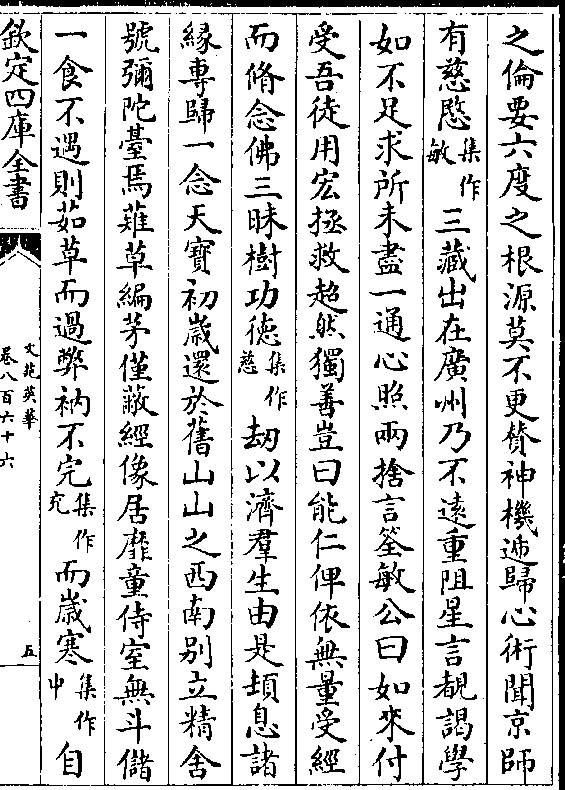 之倫要六度之根源莫不更贊神機遞歸心術聞京師
有慈愍集作敏三藏出在廣州乃不遠重阻星言覩謁學
如不足求所未盡一通心照兩捨言筌敏公曰如來付
受吾徒用宏拯救超然獨善豈曰能仁俾依無量受經
而脩念佛三昧樹功德集作慈刼以濟羣生由是頓息諸
緣專歸一念天寶初嵗還於舊山山之西南别立精舍
號彌陀臺焉薙草編茅僅蔽經像居靡童侍室無斗儲
一食不遇則茹草而過弊衲不完集作充而嵗寒集作中自
欽定四庫全書
文苑英華
卷八百六十六
五